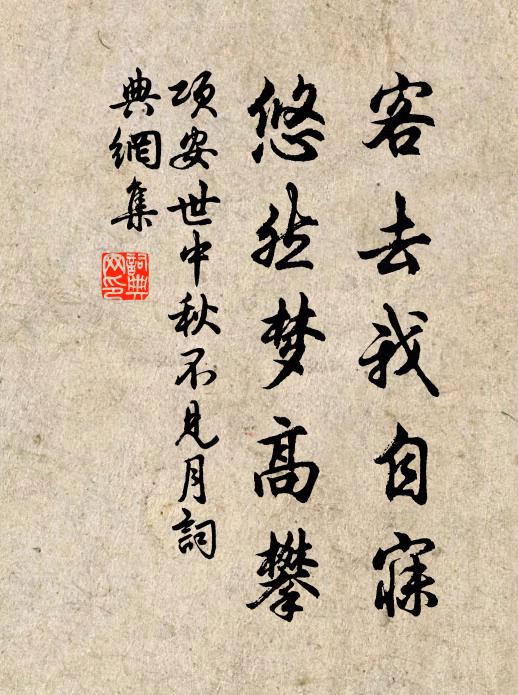 客去我自寐
悠然梦高攀
项安世中秋不见月詞
典網集
詞典
网印